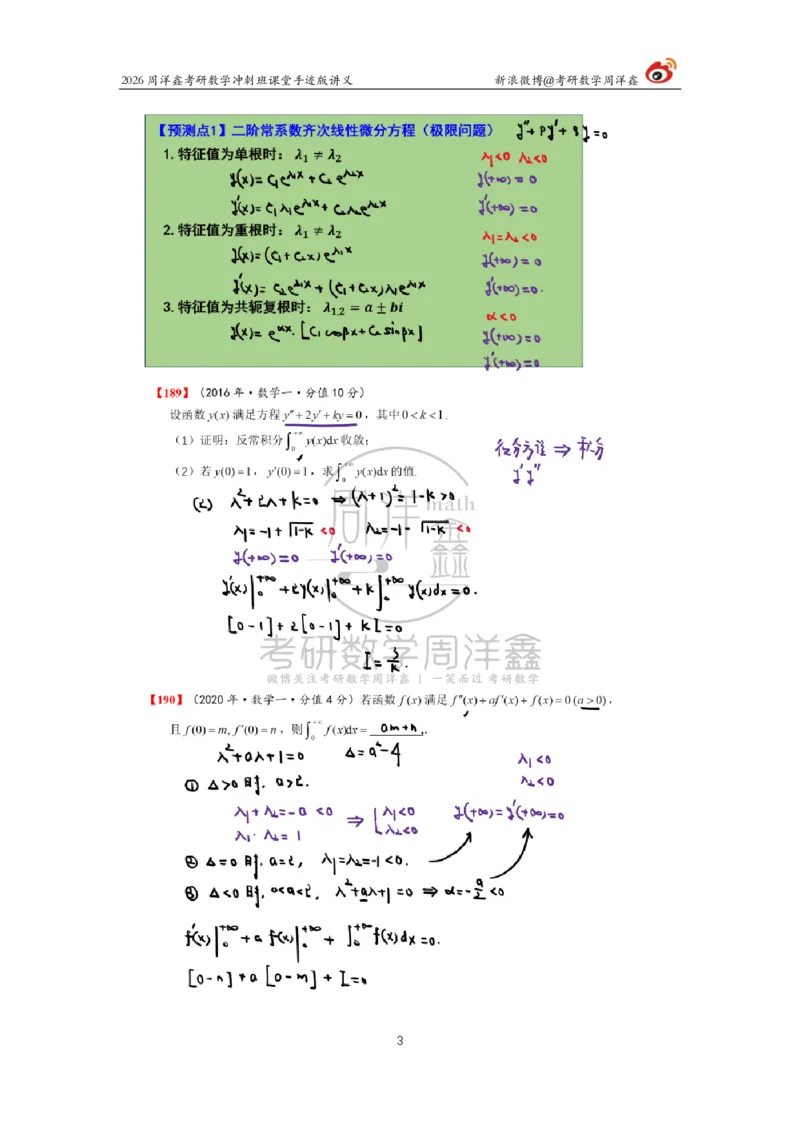 2026周洋鑫考研数学冲刺班课堂手迹版讲义 新浪微博@考研数学周洋鑫
【预测点1】二阶常系数齐次线性微分方程（极限问题） y''+py'+qy=0
1. 特征值为单根时：λ₁ ≠ λ₂ λ₁<0 λ₂<0
y(x)=C₁e^{λ₁x}+C₂e^{λ₂x} y(+∞)=0
y'(x)=C₁λ₁e^{λ₁x}+C₂λ₂e^{λ₂x} y'(+∞)=0
2. 特征值为重根时：λ₁ ≠ λ₂ λ₁=λ₂<0
y(x)=(C₁+C₂x)e^{λ₁x} y(+∞)=0
y'(x)=C₂e^{λ₁x}+(C₁+C₂x)λ₁e^{λ₁x} y'(+∞)=0.
3. 特征值为共轭复根时：λ₁,₂ = a ± bi α<0
y(x)=e^{αx}·[C₁cosβx+C₂sinβx] y(+∞)=0
y'(+∞)=0
【189】（2016年·数学一·分值10分）
设函数 y(x) 满足方程 y''+2y'+ky=0，其中 0<k<1.
（1）证明：反常积分∫₀^{+∞} y(x)dx 收敛； 微分方程 ⇒ 积分
（2）若 y(0)=1，y'(0)=1，求∫₀^{+∞} y(x)dx 的值. y' y''
(2) λ²+2λ+k=0 ⇒ (λ+1)²=1-k>0
λ₁=-1+√(1-k) <0 λ₂=-1-√(1-k) <0
y(+∞)=0 y'(+∞)=0
y'(x)|₀^{+∞}+2y(x)|₀^{+∞}+k∫₀^{+∞}y(x)dx=0.
[0-1]+2[0-1]+kI=0
I=3/k.
周洋鑫 math
考研数学周洋鑫
微博关注考研数学周洋鑫 | 一笑而过 考研数学
【190】（2020年·数学一·分值4分）若函数 f(x) 满足 f''(x)+af'(x)+f(x)=0(a>0)，
且 f(0)=m, f'(0)=n，则∫₀^{+∞} f(x)dx= am+n .
λ²+aλ+1=0 Δ=a²-4 λ₁<0
① Δ>0时，a>2. λ₂<0
λ₁+λ₂=-a<0 ⇒ {λ₁<0 y(+∞)=y'(+∞)=0
λ₁·λ₂=1 λ₂<0
② Δ=0时，a=2，λ₁=λ₂=-1<0.
③ Δ<0时，0<a<2，λ²+aλ+1=0 ⇒ α=-a/2<0
f'(x)|₀^{+∞}+a f(x)|₀^{+∞}+∫₀^{+∞}f(x)dx=0.
[0-n]+a[0-m]+I=0
3